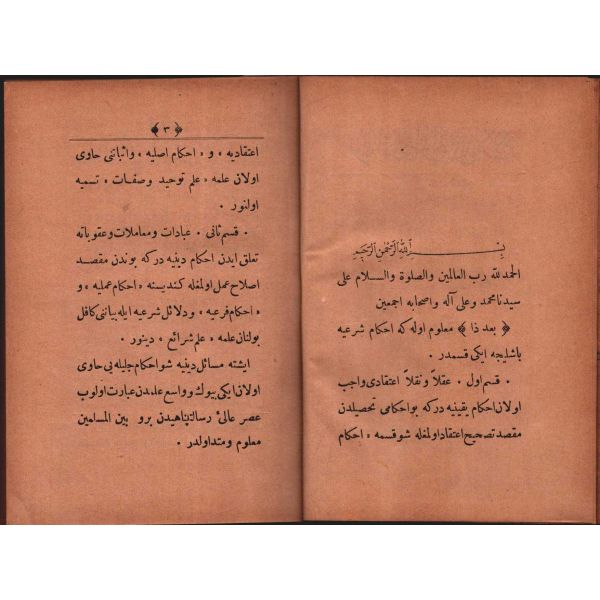 بسم الله الرحمن الرحيم
الحمد لله رب العالمين والصلوة والسلام على
سيدنا محمد وعلى آله واصحابه اجمعين
﴿ بعد ذا ﴾ معلوم اوله كه احكام شرعيه
باشليجه ايكى قسمدر ٠
٠ قسم اول ٠ عقلاً ونقلاً اعتقادى واجب
اولان احكام يقينيه دركه بواحكامى تحصيلدن
مقصد تصحيح اعتقاد اولمغله شوقسمه « احكام
﴿ ٣ ﴾
اعتقاديه » و « احكام اصليه » واثباتنى حاوى
اولان علمه « علم توحيد وصفات » تسميه
اولنور ٠
٠ قسم ثانى ٠ عبادات ومعاملات وعقوباته
تعلق ايدن احكام دينيه دركه بوندن مقصد
اصلاح عمل اولمغله كنديسنه « احكام عمليه » و
« احكام فرعيه » ودلائل شرعيه ايله بياننى كافل
بولنان علمه « علم شرائع » دينور ٠
ايشته مسائل دينيه شواحكام جليله يى حاوى
اولان ايكى بيوك وواسع علمدن عبارت اولوب
عصر عالئ رسالتپناهيدن برو بين المسلمين
معلوم ومتداولدر ٠